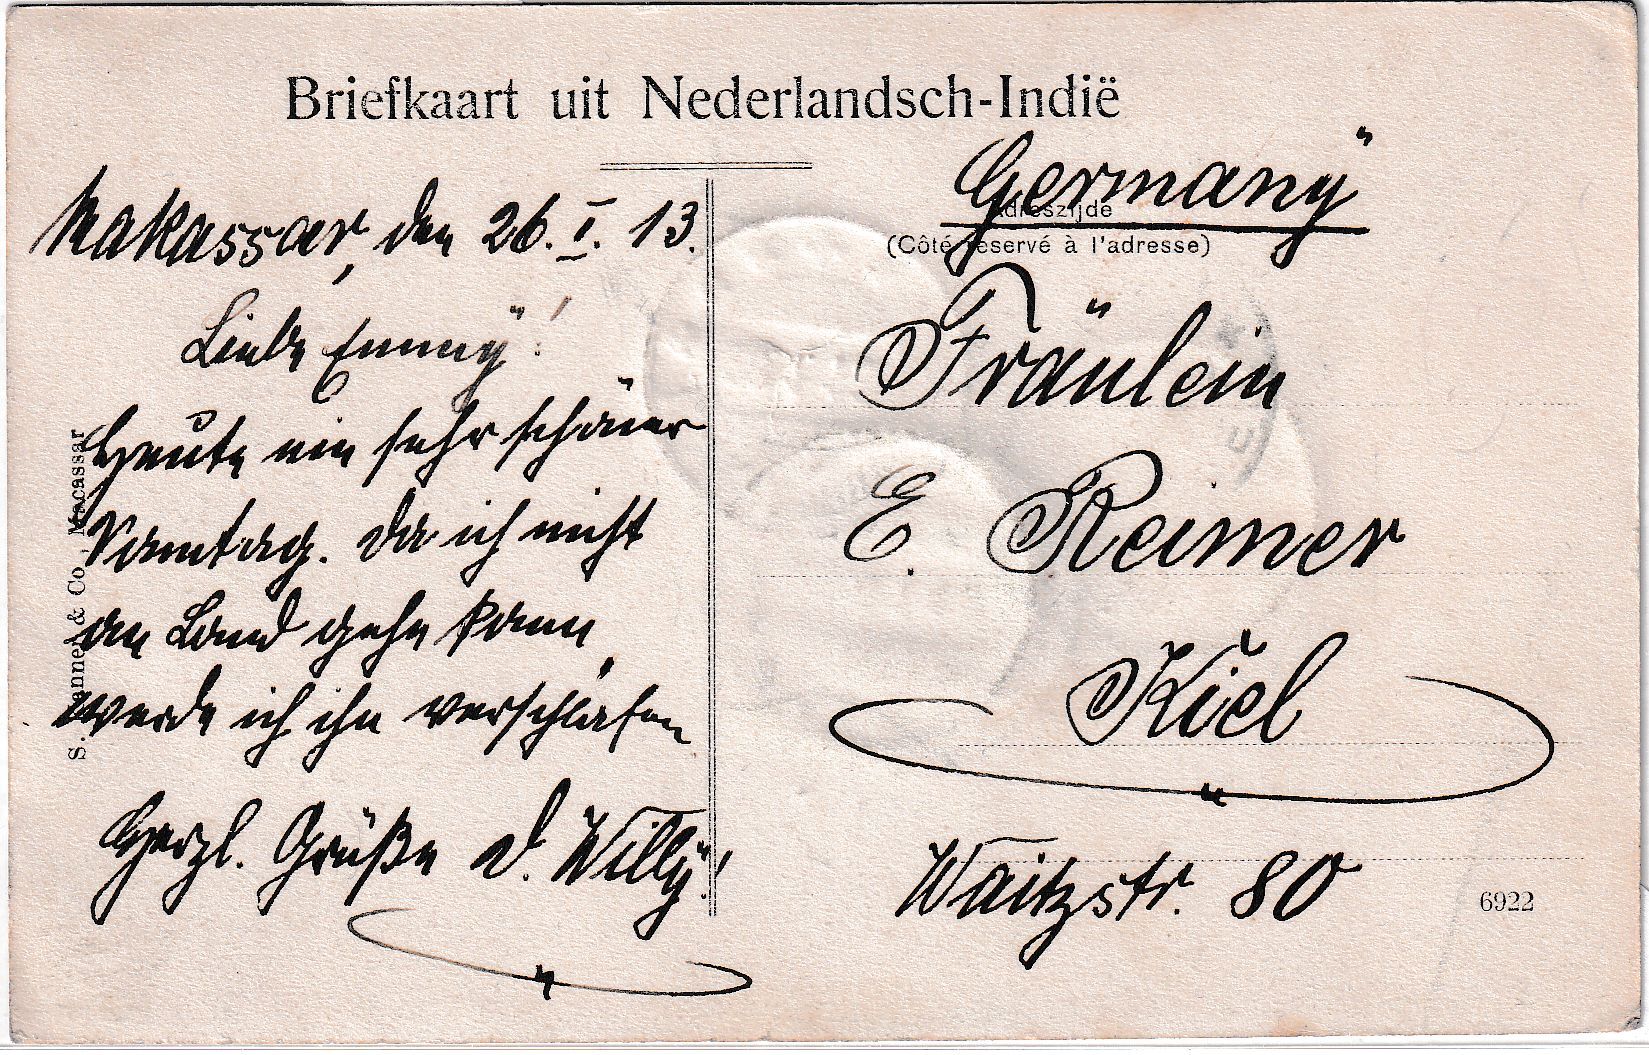 Briefkaart uit Nederlandsch-Indië
Makassar, den 26. I. 13.
Liebe Emmy!
Heute ein sehr schöner
Sonntag. Da ich nicht
an Land gehn kann,
werde ich ihn verschlafen
Herzl. Grüße d. Willy!
Germany
Adreszijde
(Côté réservé à l'adresse)
Fräulein
E. Reimer
Kiel
Waitzstr. 80
6922
& Co, Macassar